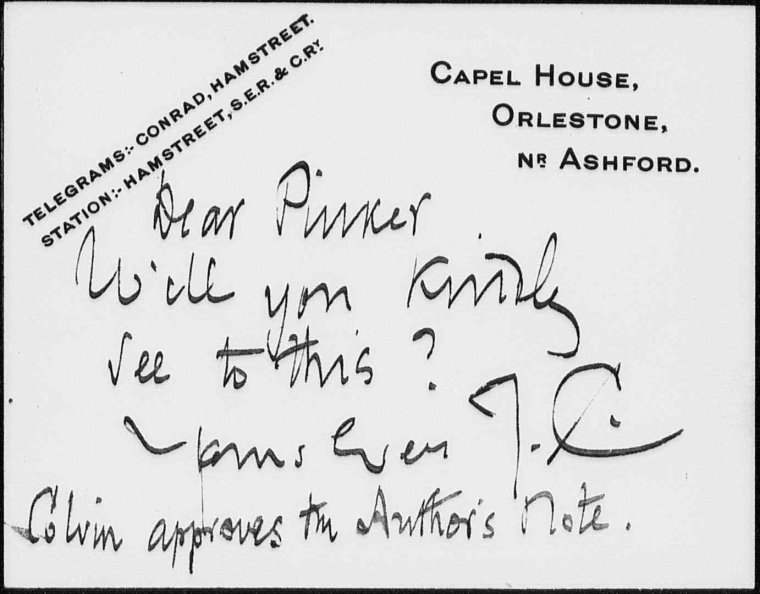 TELEGRAMS:- CONRAD, HAMSTREET.
STATION:- HAMSTREET, S.E.R. & C.RY.
CAPEL HOUSE,
ORLESTONE,
NR ASHFORD.
Dear Pinker
Will you kindly
see to this?
Yours Ever J. C.
Colvin approves the Author's Note.